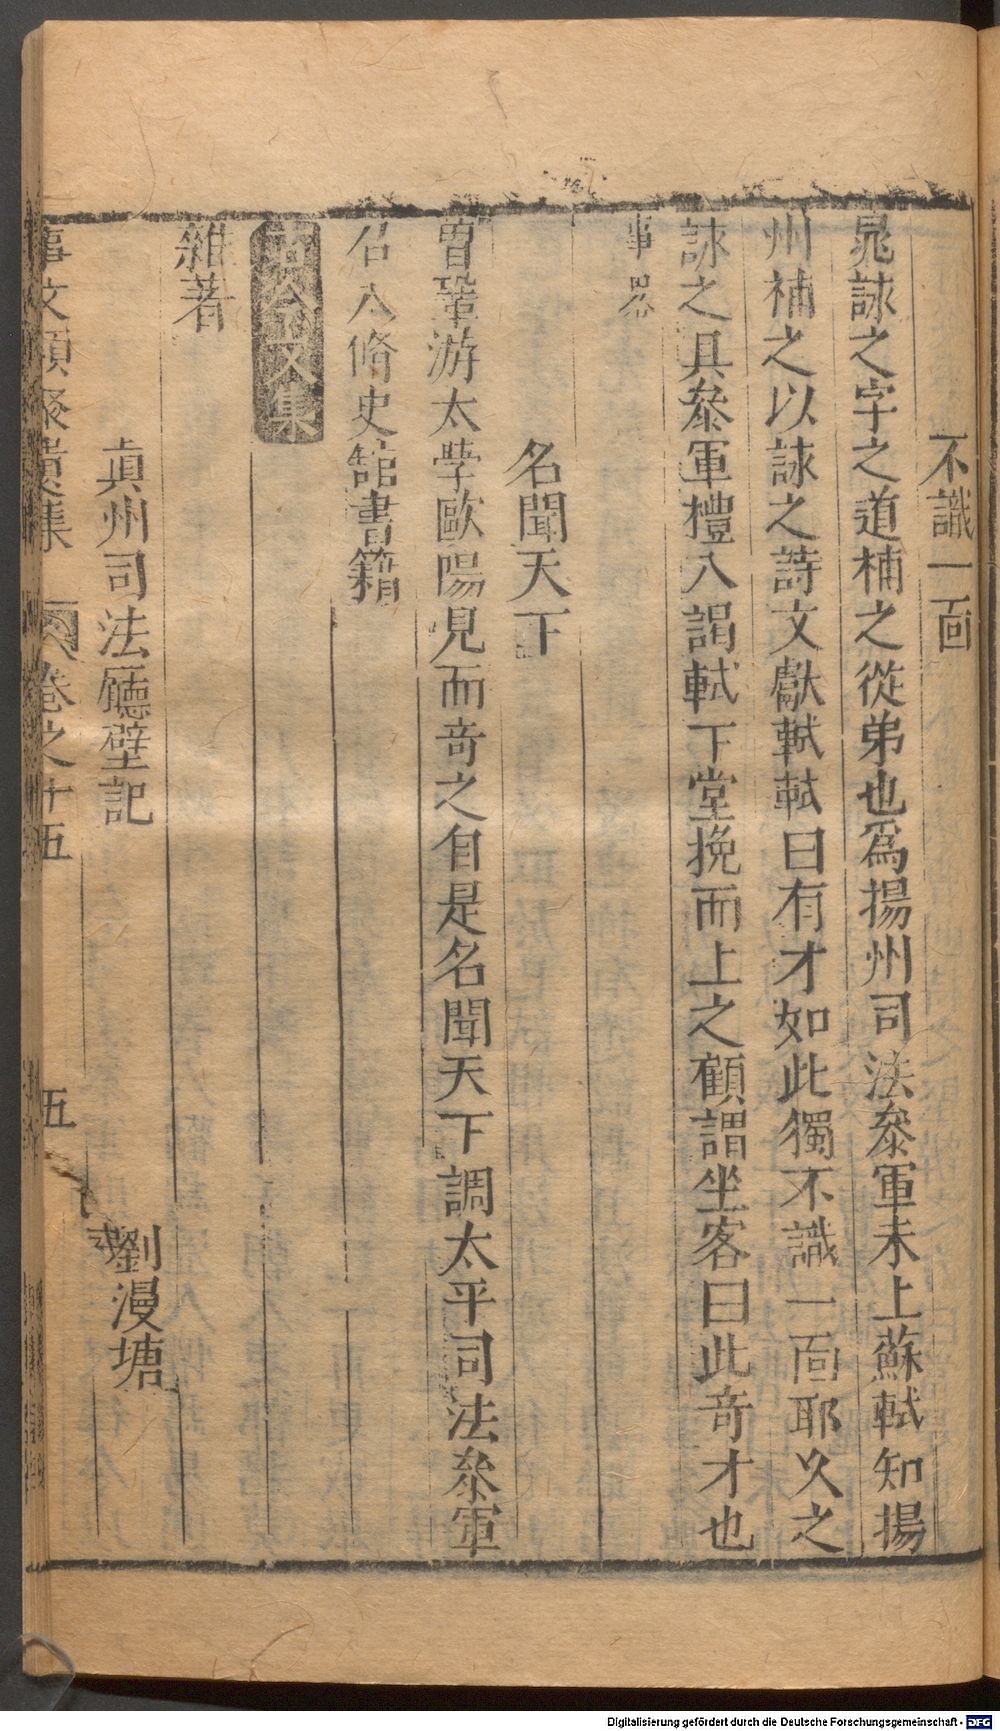 不識一面
晁詠之字之道補之從弟也爲揚州司法叅軍未上蘇軾知揚
州補之以詠之詩文獻軾軾曰有才如此獨不識一面耶久之
詠之具叅軍禮入謁軾下堂挽而上之顧謂坐客曰此奇才也
事畧
名聞天下
曾鞏游太學歐陽見而奇之自是名聞天下調太平司法叅軍
召入脩史舘書籍
古今文集
雜著
眞州司法廳壁記 劉漫塘
事文類聚遺集 卷之十五 五
Digitalisierung gefördert durch die Deutsche Forschungsgemeinschaft - DFG